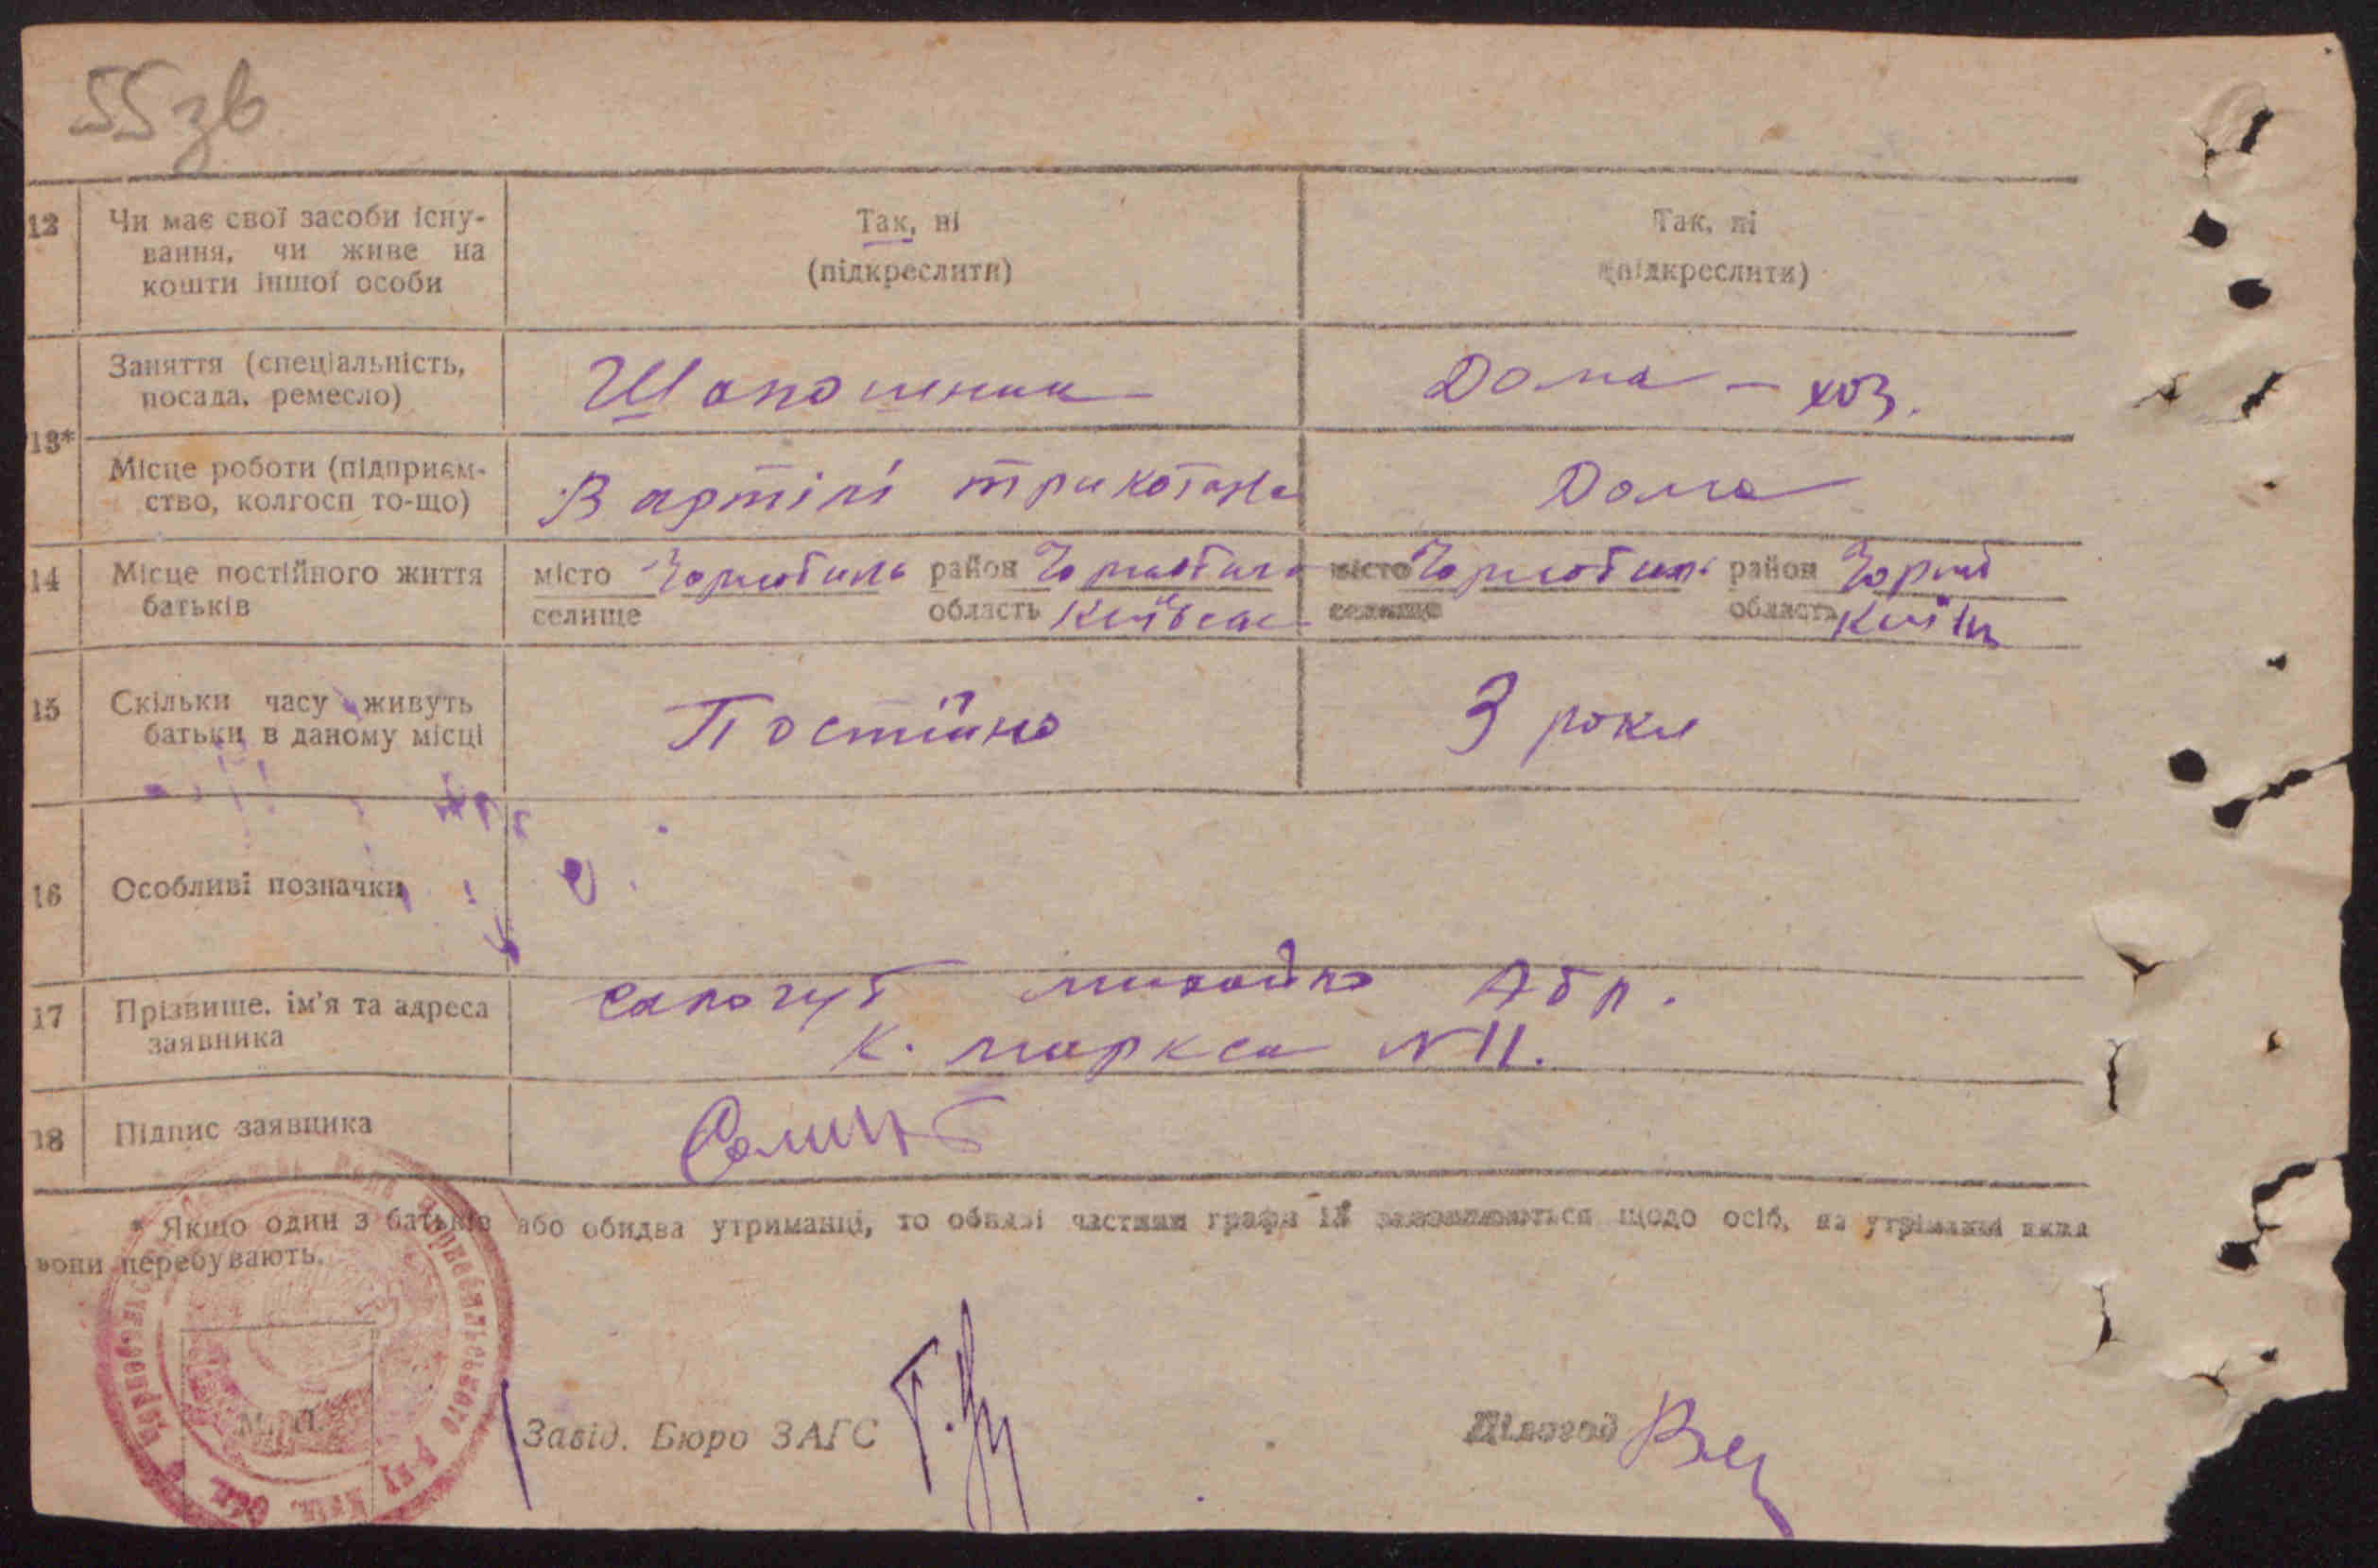 55 зв
12 Чи має свої засоби існу-
вання, чи живе на
кошти іншої особи
Так, ні
(підкреслити)
Так, ні
(підкреслити)
13*
Заняття (спеціальність,
посада, ремесло)
Шапошник
Дома - хоз.
Місце роботи (підприєм-
ство, колгосп то-що)
В артілі трикотажа
Дома
14 Місце постійного життя
батьків
місто Чорнобиль район Чорнобиль
селище область Київськ
місто Чорнобиль район Чорноб
селище область Київ
15 Скільки часу живуть
батьки в даному місці
Постійно
3 роки
16 Особливі позначки
17 Прізвище, ім'я та адреса
заявника
Михайло Абр.
К. Маркса №11.
18 Підпис заявника
* Якщо один з батьків або обидва утриманці, то обидві частини графи 13 заповнюються щодо осіб, на утриманні яких
вони перебувають.
М. П.
Завід. Бюро ЗАГС
Діловод